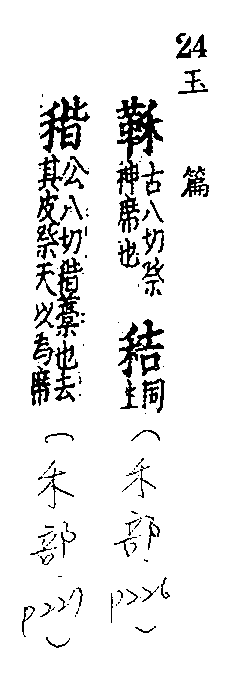 24 玉篇
鞂 古八切祭神席也 秸 同上 (禾部. p226)
稭 公八切稭藁也去其皮祭天以為席 (禾部. p227)